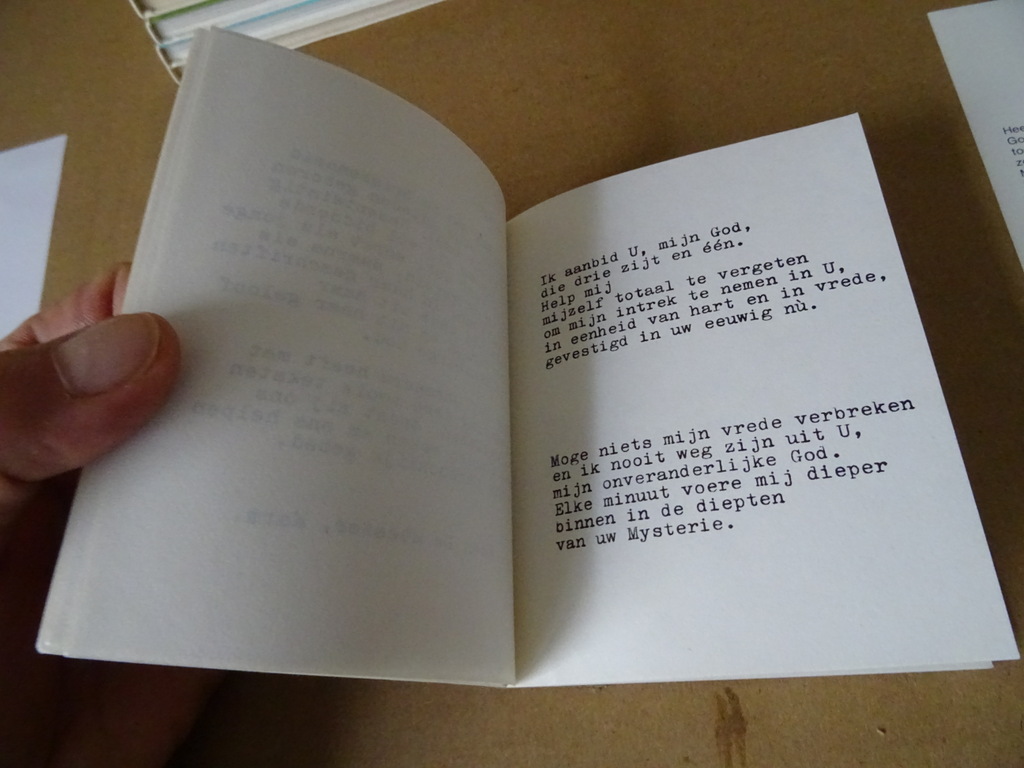 Ik aanbid U, mijn God,
die drie zijt en één.
Help mij
mijzelf totaal te vergeten
om mijn intrek te nemen in U,
in eenheid van hart en in vrede,
gevestigd in uw eeuwig nù.
Moge niets mijn vrede verbreken
en ik nooit weg zijn uit U,
mijn onveranderlijke God.
Elke minuut voere mij dieper
binnen in de diepten
van uw Mysterie.